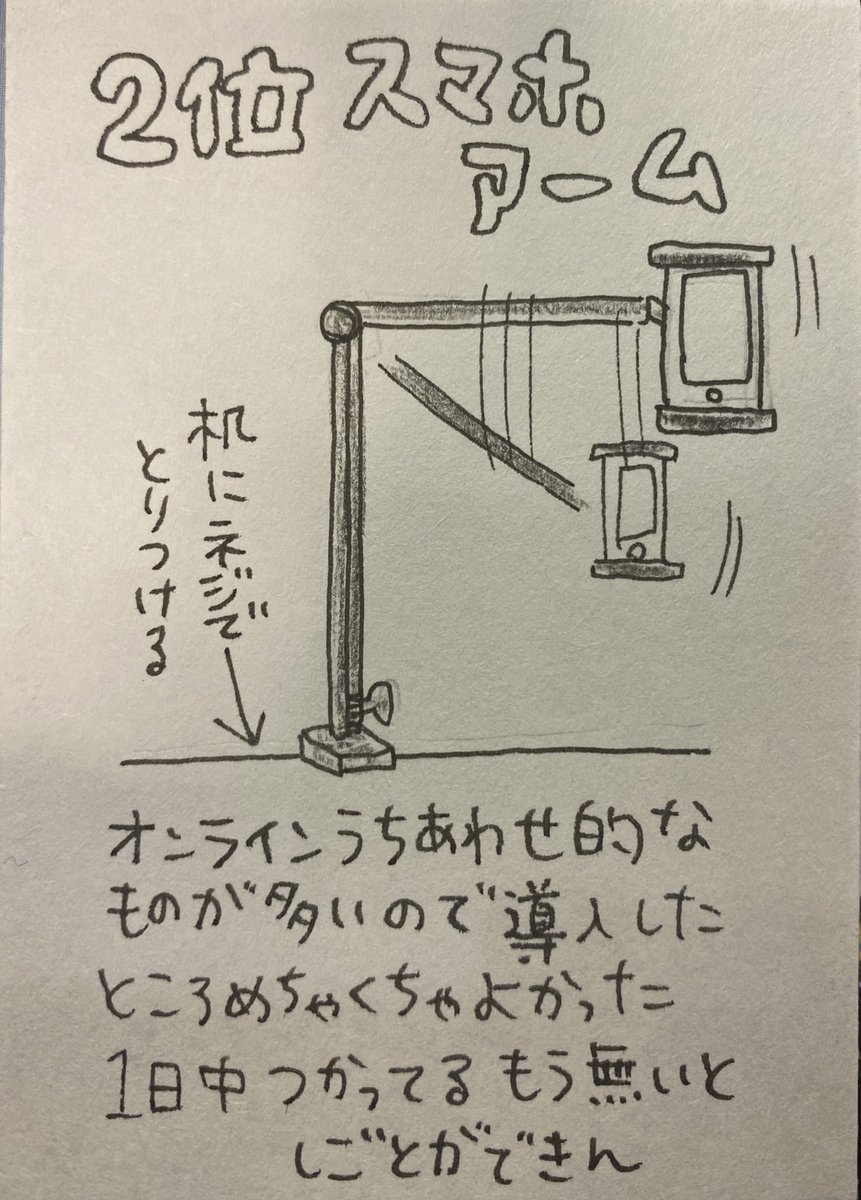 2位 スマホ
アーム
机にネジで
とりつける
オンラインうちあわせ的な
ものが多いので導入した
ところめちゃくちゃよかった
1日中つかってるもう無いと
しごとができん